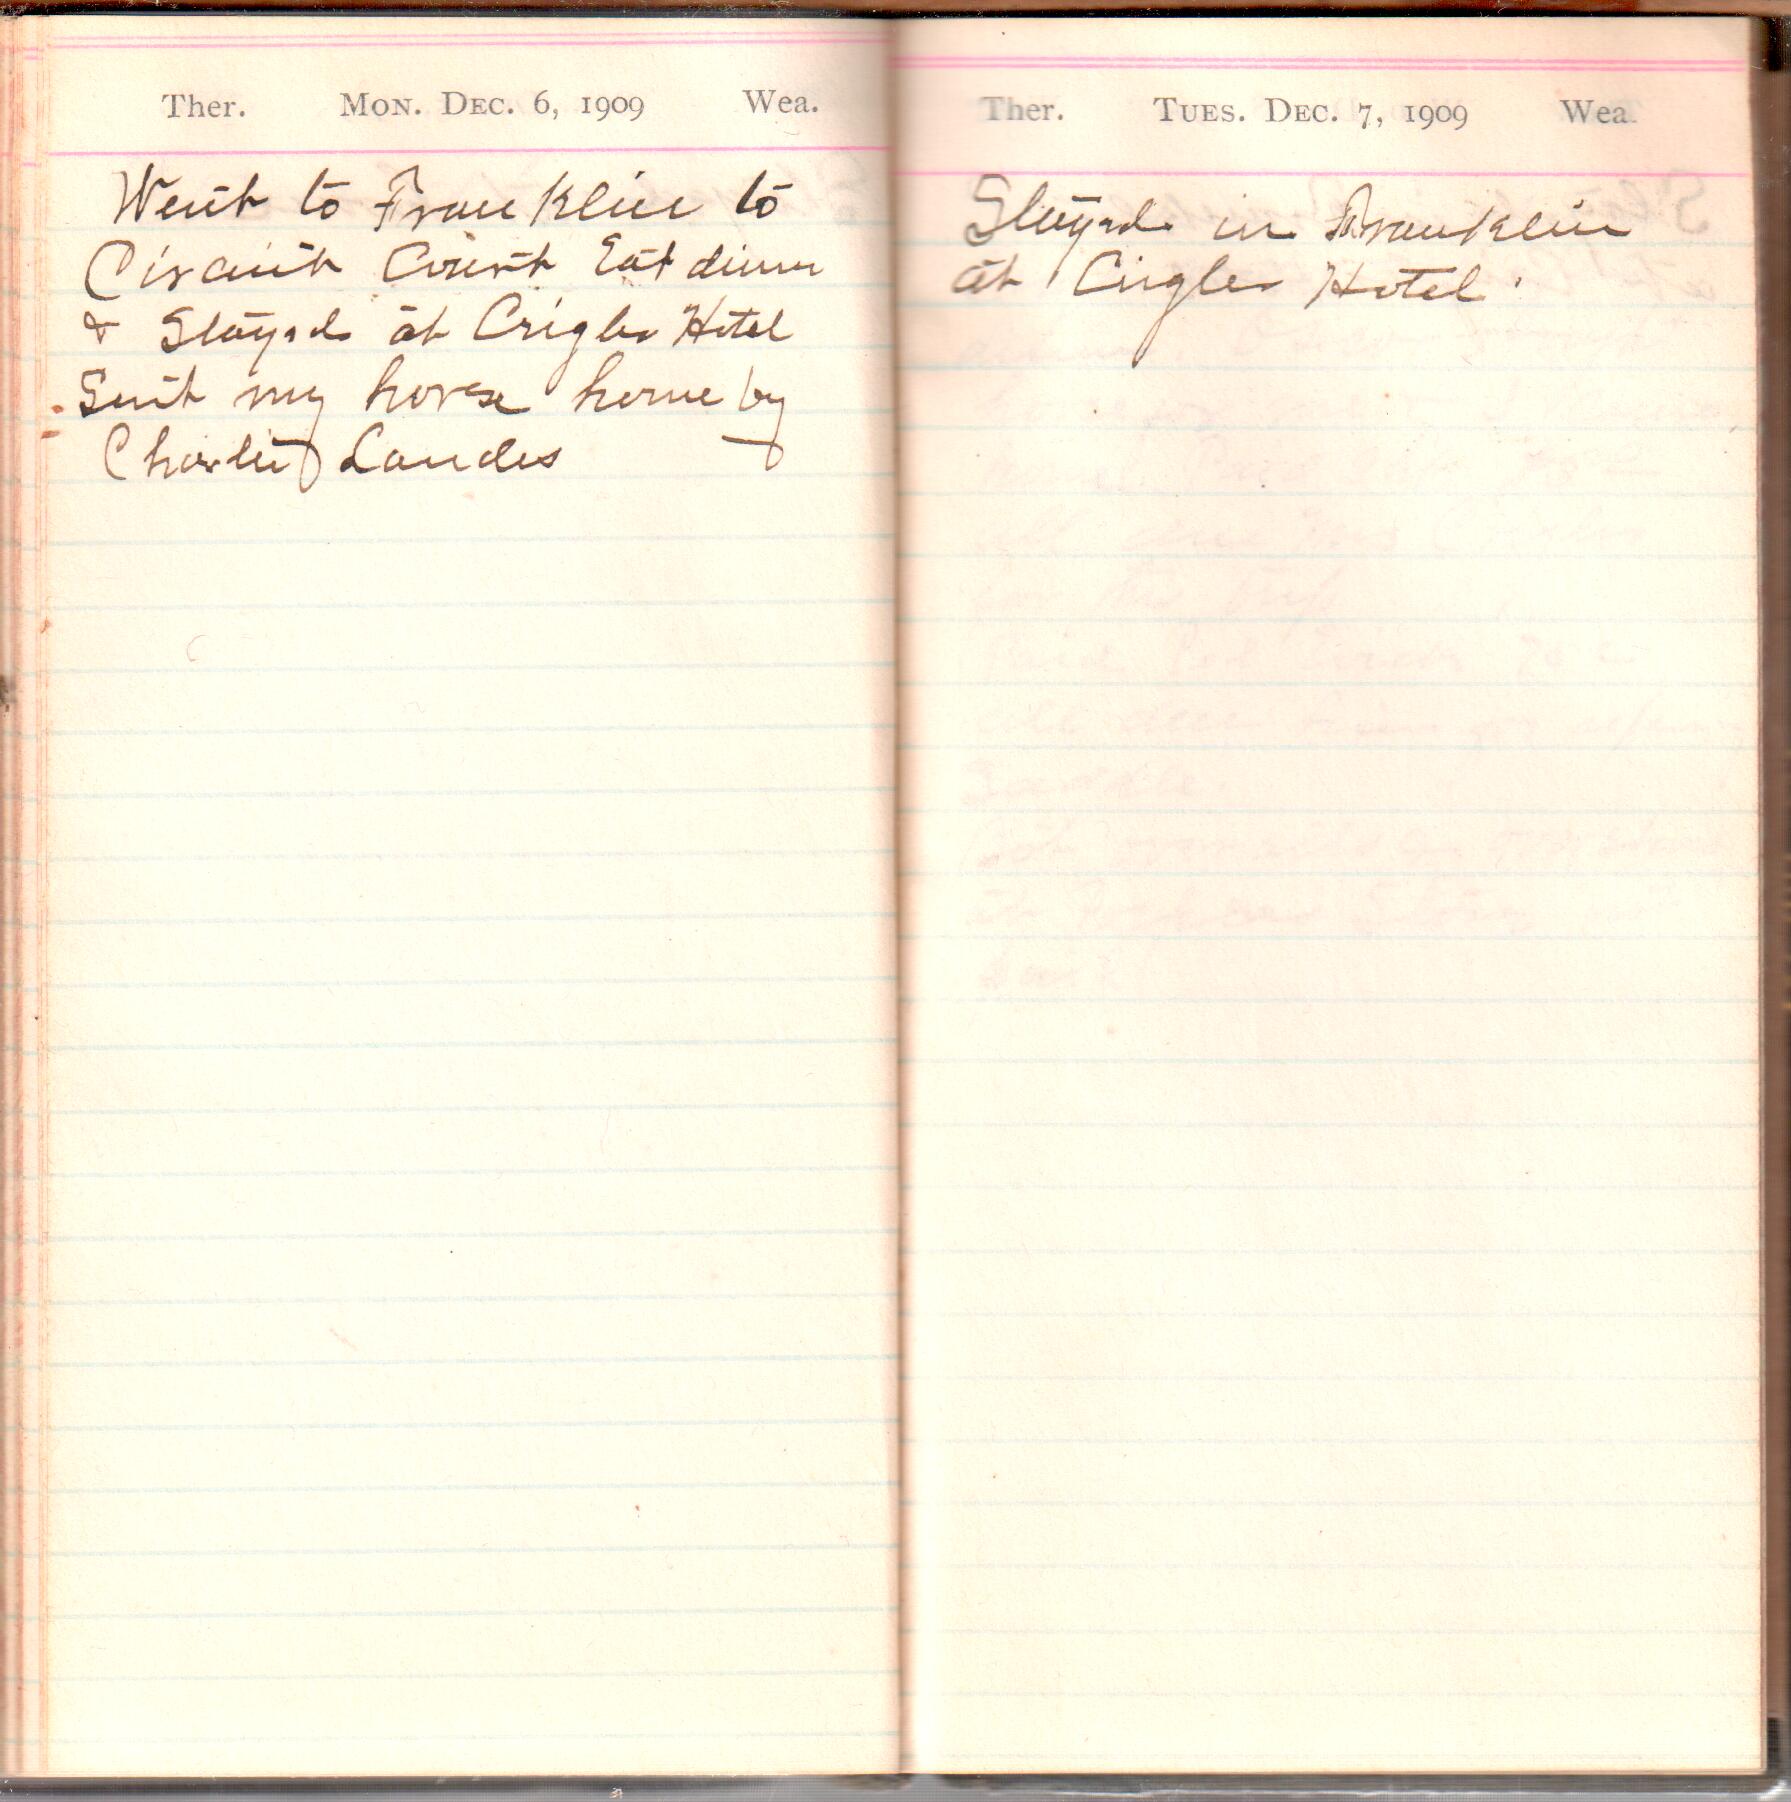 Ther. MON. DEC. 6, 1909 Wea.
Went to Franklin to
Circuit Court Eat dinner
& Stayed at Crigler Hotel
Sent my horse home by
Charley Landes
Ther. TUES. DEC. 7, 1909 Wea.
Stayed in Franklin
at Crigler Hotel.